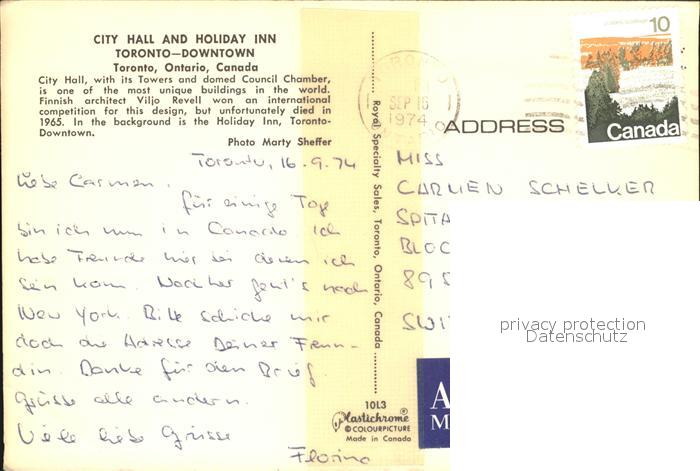 CITY HALL AND HOLIDAY INN
TORONTO—DOWNTOWN
Toronto, Ontario, Canada
City Hall, with its Towers and domed Council Chamber,
is one of the most unique buildings in the world.
Finnish architect Viljo Revell won an international
competition for this design, but unfortunately died in
1965. In the background is the Holiday Inn, Toronto-
Downtown.
Photo Marty Sheffer
Toronto, 16.9.74
Liebe Carmen,
für einige Tage
bin ich nun in Canada. Ich
habe Freunde hier bei denen ich
sein kann. Nachher geht's nach
New York. Bitte schicke mir
doch die Adresse Deiner Freun-
din. Danke für den Brief.
Grüsse alle andern.
Viele liebe Grüsse
Royal Specialty Sales, Toronto, Ontario, Canada
10L3
Plastichrome®
© COLOURPICTURE
Made in Canada
SEP 16
1974
10
Canada
ADDRESS
MISS
CARMEN SCHELKER
SPITA
BLOC
895
SWI
A
M
privacy protection
Datenschutz